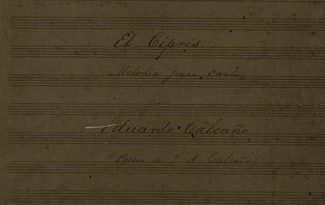 El Ciprés
Melodía para canto
por
Eduardo Calcaño
(Poesía de J. A. Calcaño)